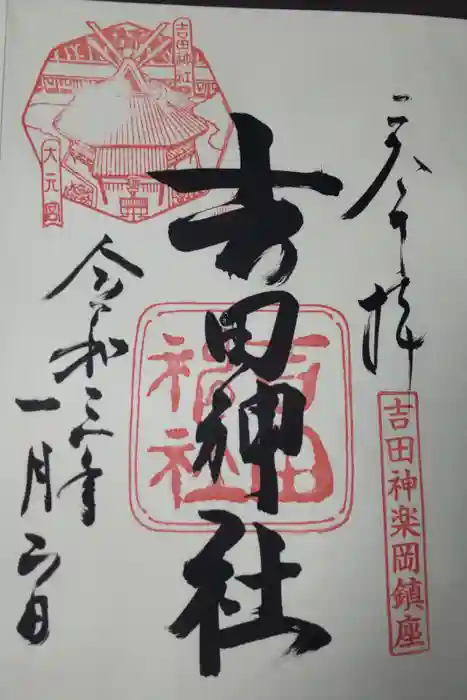 奉拝
吉田神楽岡鎮座
吉田神社
吉田
神社
吉田神社
大元宮
令和三年
一月二日